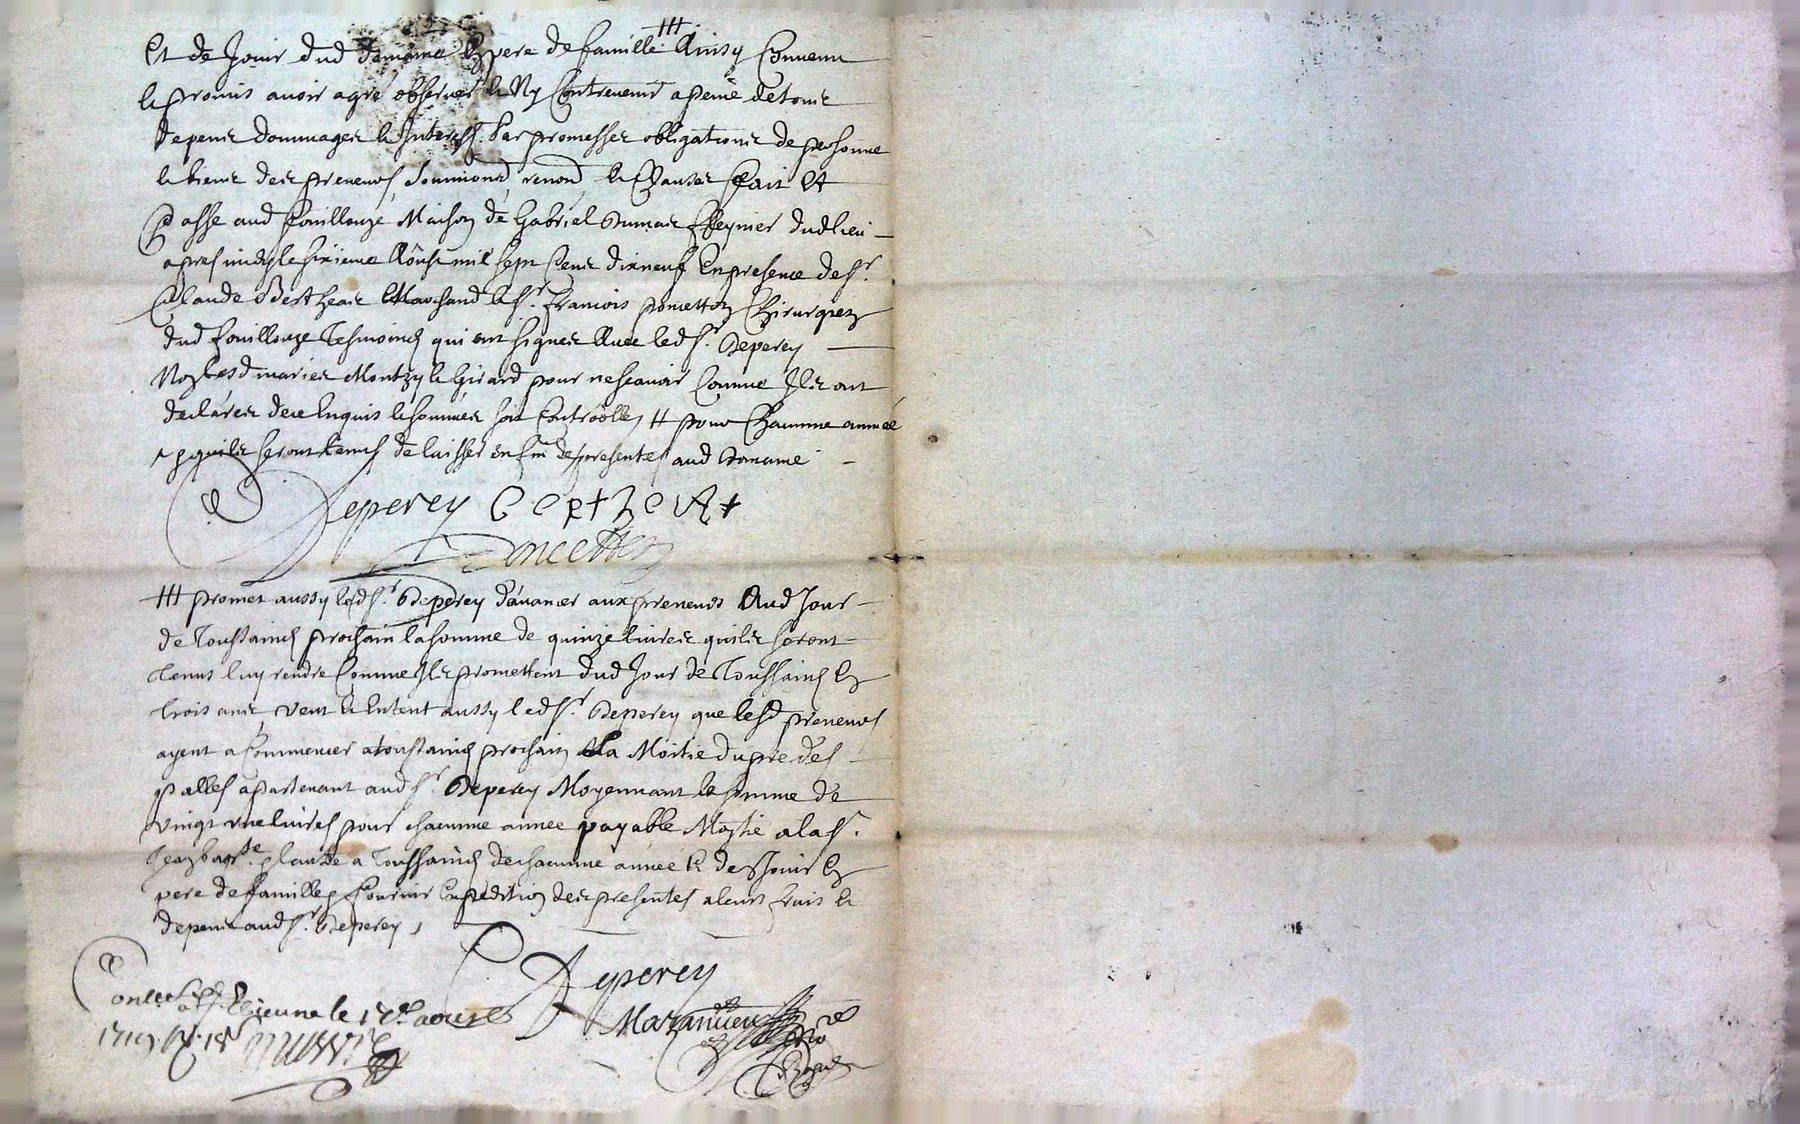 Et de Jouir dud domaine En pere de famille ╫ Ainsy Convenu
et promis avoir agré observer et Ny Contrevenir a peine de tous
depens dommages et Interests Par promesses obligations de personne
et biens desd preneurs soumiond renond et Clauses fait Et
Passé aud fouillouze Maison de Gabriel Dumas dud lieu
apres midy le sixieme Aoust mil sept Cens dixneuf En presence de sr.
Claude Bertheas Marchand et sr. Francois poncetton Chirurgien
dud fouillouze Tesmoings qui ont signes Avec led sr. Deperey
Non lesd maries Montzy et Girard pour ne scavoir Comme Ils ont
declarés de ce Enquis et sommés soit Controollé, # pour Chacunne année
qu'ils seront tenus de laisser en fin des presentes aud domaine
Deperey Bertheas
Poncetton
╫ promet aussy led sr. Deperey d'avancer aux preneurs Aud Jour
de Toussaincts prochain la somme de quinze livres quils seront
tenus luy rendre Comme Ils promettent dud Jour de Toussaincts En
trois ans, veut et Entent aussy led sr. Deperey que lesd preneurs
ayent a Commencer a toussaincts prochain La Moitie du pré des
palles apartenant aud sr. Deperey Moyennant la somme de
vingt une livres pour chacunne année payable Moytié a la st.
Jean bapte. et l'autre a Toussaincts de chacunne année et de Jouir En
pere de famille, fournir Expedition des presentes a leurs frais et
depens aud sr. Deperey,
Deperey
Con.llé a St Etienne le 17e aoust
1719.